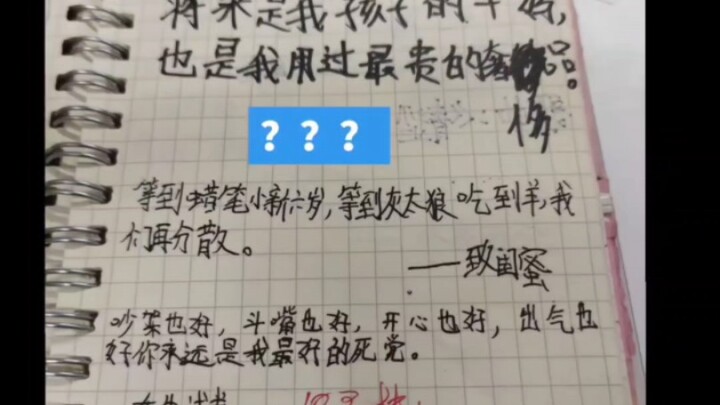 将来是我孩子的干妈,
也是我用过最贵的奢品。
侈
？？？
等到蜡笔小新六岁,等到灰太狼吃到羊,我
们再分散。
——致闺蜜
吵架也好,斗嘴也好,开心也好,出气也
好你永远是我最好的死党。